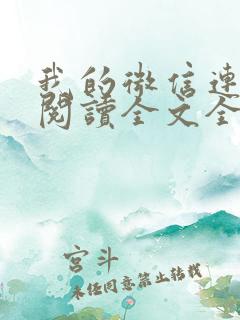 我的微信連
閱讀全文全
宮斗
未经同意禁止转载